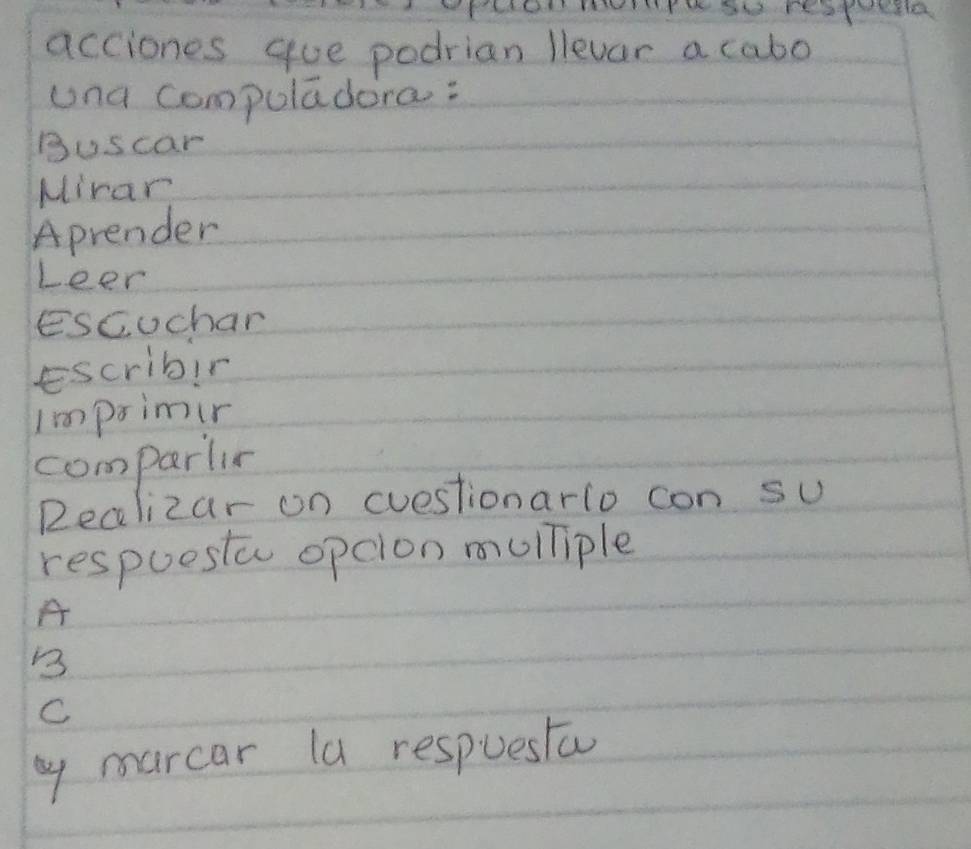 opcion multiple su respuesta
acciones que podrian llevar a cabo
una computadora:
Buscar
Mirar
Aprender
Leer
Escuchar
Escribir
Imprimir
compartir
Realizar un cuestionario con su
respuesta opcion multiple
A
B
C
y marcar la respuesta